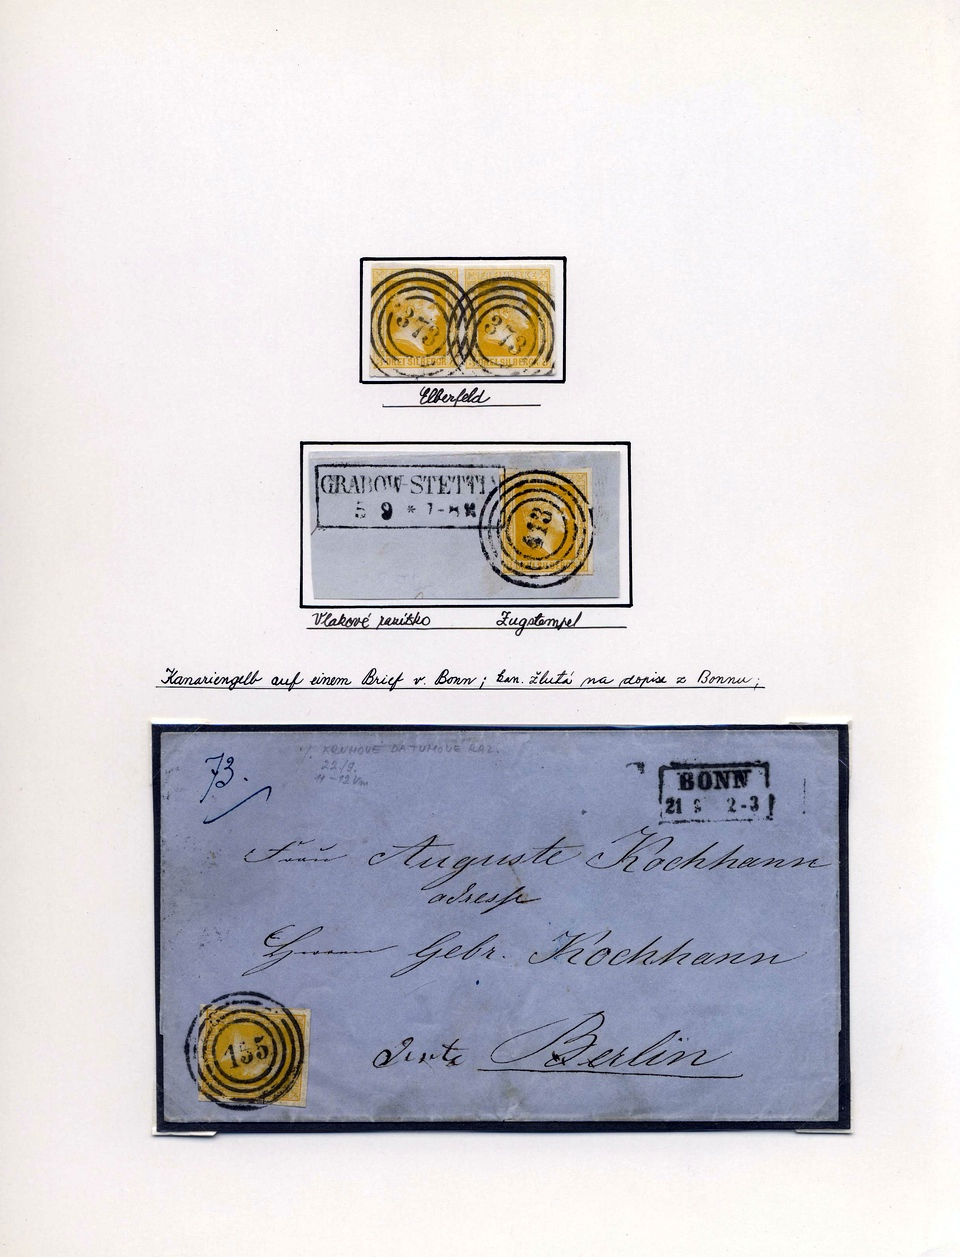 373 373
DREI SILBERGR.
Elberfeld
GRABOW-STETTIN
5 9 * 7-
513
SILBERGR
Vlakové razítko Zugstempel
Kanariengelb auf einem Brief v. Bonn; kan. žlutá na dopise z Bonnu;
KRUHOVÉ DATUMOVÉ RAZ.
22/9.
11-12 Vm
73.
BONN
21 9 2-3
Frau Auguste Kochhann
adresse
Herren Gebr. Kochhann
155
Berlin